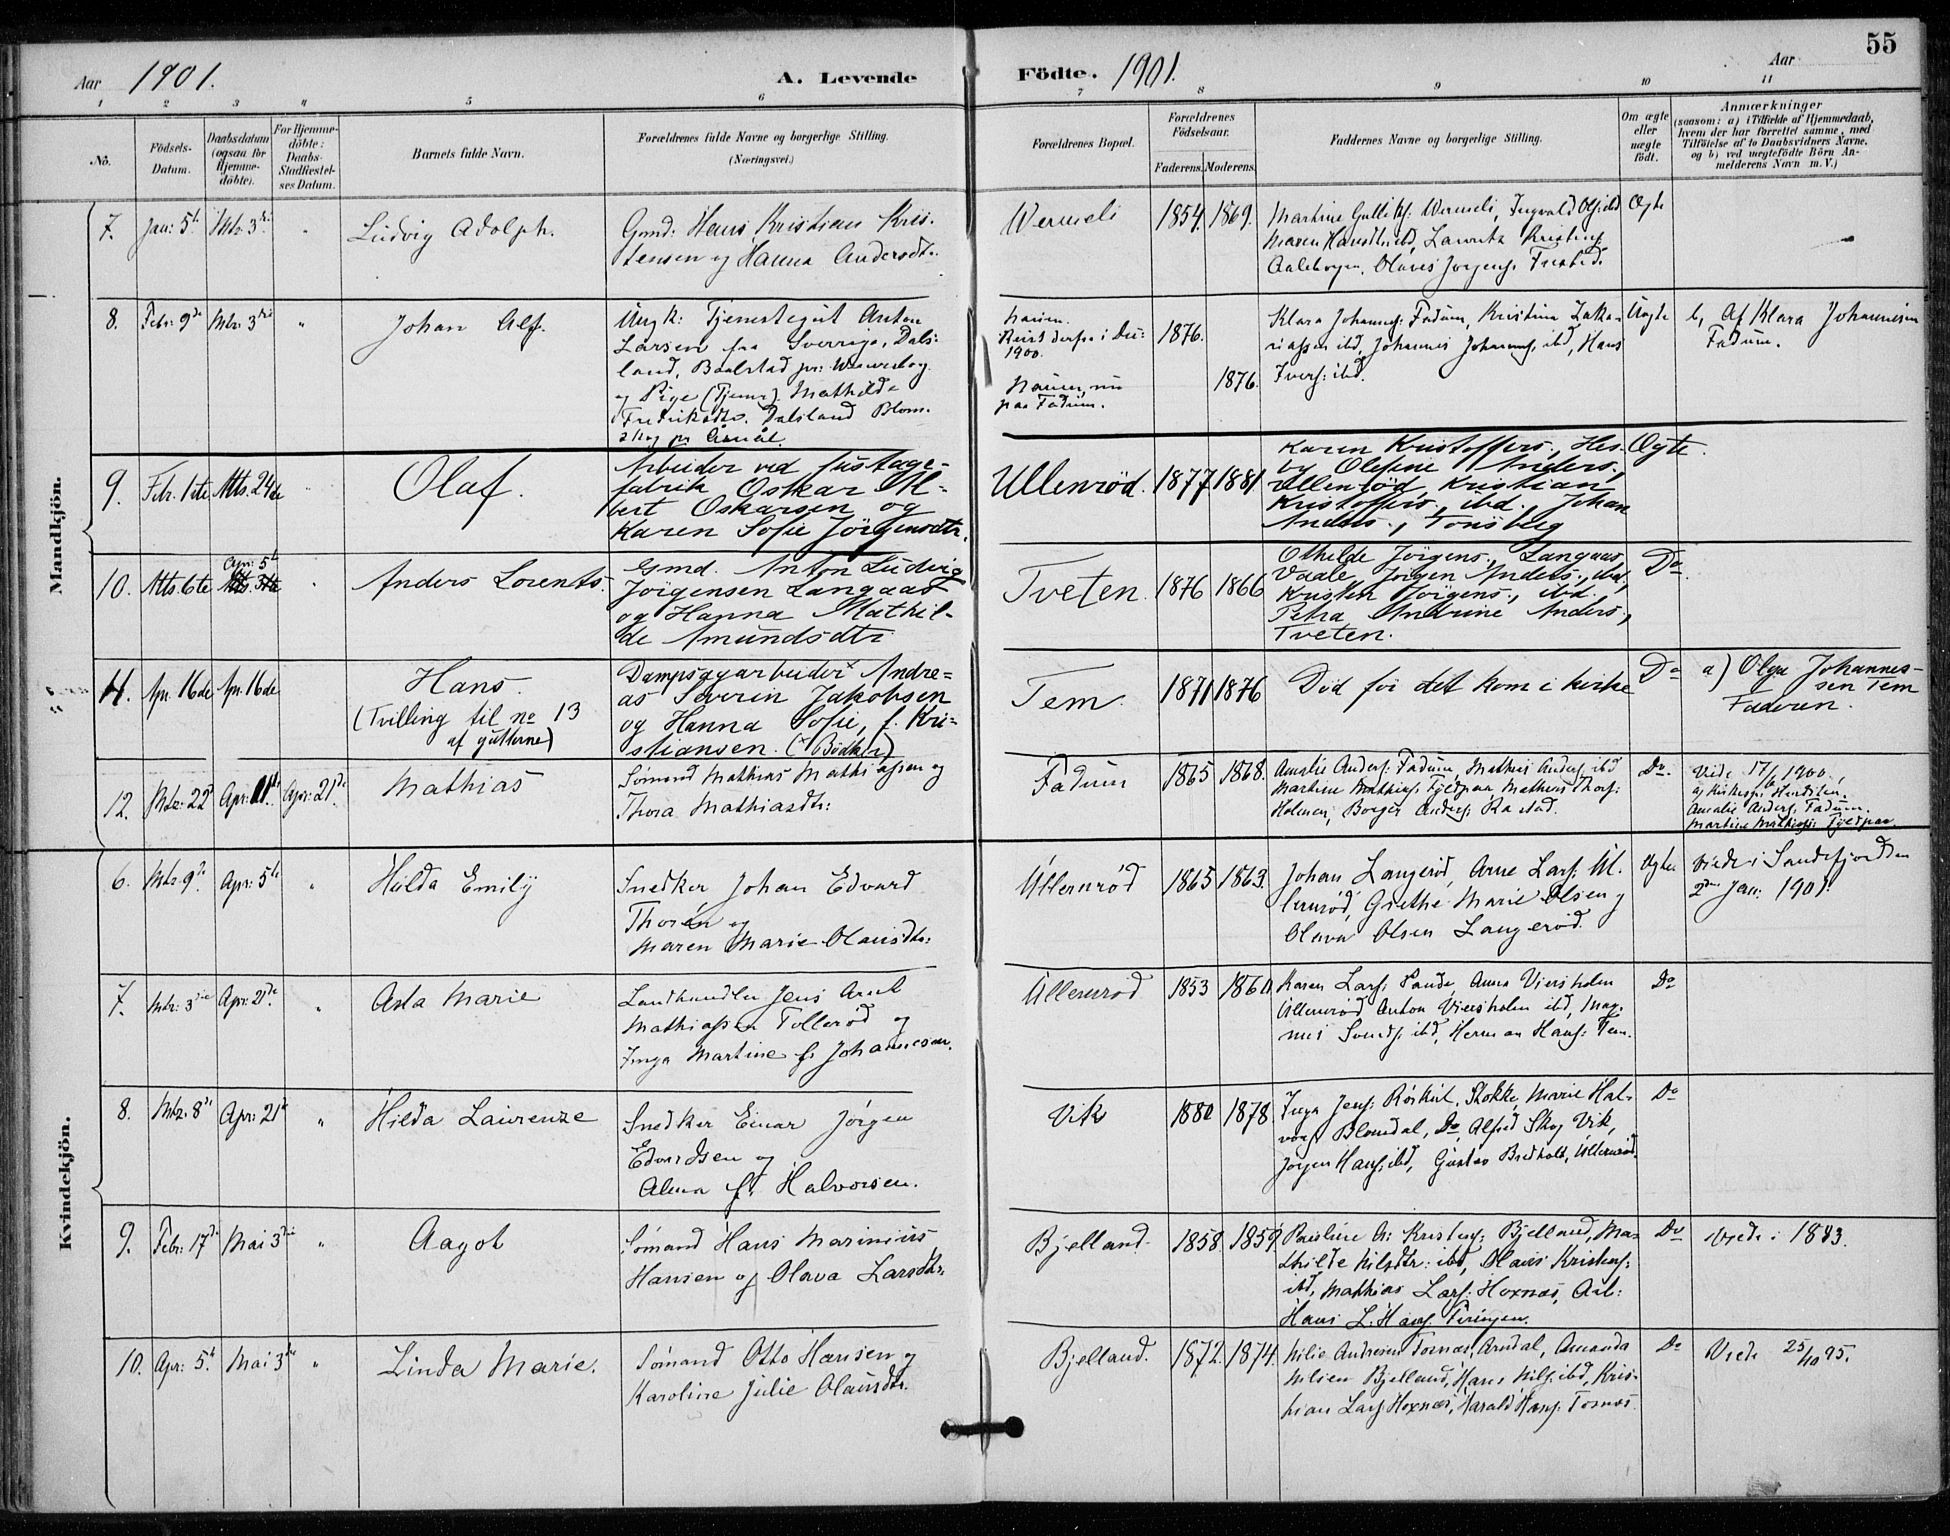 55
Aar 1901. A. Levende Födte. 1901. Aar
1 2 3 4 5 6 7 8 9 10 11
No.
Födsels-Datum.
Daabsdatum (ogsaa for Hjemme-döbte).
For Hjemme-döbte: Daabs-Stadfæstel-ses Datum.
Barnets fulde Navn.
Forældrenes fulde Navne og borgerlige Stilling. (Næringsvei.)
Forældrenes Bopæl.
Forældrenes Födselsaar.
Faderens. Moderens.
Faddernes Navne og borgerlige Stilling.
Om ægte eller uægte födt.
Anmærkninger
(saasom: a) i Tilfælde af Hjemmedaab,
hvem der har forrettet samme, med
Tilföielse af to Daabsvidners Navne,
og b) ved uægtefödte Börn An-
melderens Navn m. V.)
Mandkjön.
7. Jan: 5t Mts. 3die " Ludvig Adolph.
Gmd: Hans Kristian Kris-
tensen og Hanna Andersdtr.
Wermeli 1854. 1869.
Martine Gulliks: Wermeli, Ingvald Ols: ibd
Maren Hansdtr ibd, Lawritz Kristens:
Olaves Jørgens:
Ægte
8. Febr: 9de Mts: 3die " Johan Alf.
Ungk: Tjenestegut Anton
Larsen fra Sverrige, Dals-
land,
og Pige (Tjener) Mathilde
Fredriksdtr. Dalsland Blom-
skog pr Åmål.
Nauen.
1900.
1876.
Nauen, nu
paa Fadum.
1876.
Klara Johannes: Fadum, Kristina Zaka-
riassen ibd, Johannes Johannes: ibd, Hans
Ivers: ibd.
Uægte
b, Af Klara Johannesen
Fadum.
9. Febr. 1ste Mts. 24de " Olaf.
Arbeider ved fustage-
fabrik Oskar Al-
bert Oskarsen og
Karen Sofie Jörgensdtr.
Ullenröd. 1877 1881
Karen Kristoffers., Hes-
by Olefine Anders.,
Ullenröd Kristian
Kristoffers., ibd. Johan
Anders., Tönsberg
Ægte.
10. Mts. 6te Apr: 5te " Anders Lorents.
Gmd. Anton Ludvig
Jörgensen Langaas
og Hanna Mathil-
de Amundsdtr
Tveten. 1876 1866
Othilde Jörgens., Langaas,
Vaale, Jörgen Anders., ibd,
Kristen Jörgens., ibd.,
Petra Andrine Anders.,
Tveten.
Do
11. Apr. 16de Apr. 16de Hans.
(Tvilling til no 13
af gutterne)
Dampsagarbeider x Andre-
as Severin Jakobsen
og Hanna Sofie, f. Kri-
stiansen. (x Bödker)
Tem. 1871 1876
Död för det kom i kirke
Do
a) Olga Johannes-
sen Tem
Faderen.
12. Mts: 22d Apr: 11te Apr: 21de. Mathias
Sømand Mathias Mathiassen og
Thora Mathiasdtr:
Fadum 1865 1868.
Amalie Anders: Fadum, Mathias Anders: ibd
Martine Mathias: Fjeldpaa, Mathias Thors:
Holmen, Borger Anders: Rastad.
Do.
Viede 17/6 1900,
Amalie Anders: Fadum.
Martine Mathias: Fjeldpaa
Kvindekjön.
6. Mts. 9de Apr: 5te " Hulda Emily
Snedker Johan Edvard
Thorén og
Maren Marie Olausdtr:
Ullernrød 1865 1863.
Johan Langerød, Arne Lars: Ul-
lernrød, Grethe Marie Olsen og
Olava Olsen Langerød.
Ægte.
Viede i Sandefjord den
2den Jan: 1901.
7. Mts: 3die Apr: 21de. " Asta Marie
Landhandler Jens Arnt
Mathiassen Tollerød og
Inga Martine f. Johannesen.
Ullernrød 1853 1860
Karen Lars: Sande, Anna Viersholm
Ullernrød Anton Viersholm ibd, Mag-
nus Svends: ibd, Herman Hans: Tem.
Do
8. Mts. 8de Apr: 21de " Hilda Laurenze
Snedker Einar Jørgen
Edvardsen og
Alma f. Halvorsen.
Vik 1880 1878
Inga Jens: Røskil, Stokke, Marie Hal-
vors: Blomdal, Do, Alfred Skog Vik,
Jørgen Hans: ibd, Gustav Bredholt, Ullernrød.
Do
9. Febr: 17de Mai 3die " Aagot
Sømand Hans Marinius
Hansen og Olava Larsdtr:
Bjelland. 1858. 1859
Pauline A: Kristens: Bjelland, Ma-
thilde Nilsdtr: ibd, Olaus Kristens:
ibd, Mathias Lars: Hoxnæs,
Hans L. Hans:
Do
Viede i 1883.
10. Apr: 5te Mai 3die " Linda Marie.
Sømand Otto Hansen og
Karoline Julie Olausdtr.
Bjelland. 1872. 1874.
Milie Andresen Tornæs, Arndal, Amanda
Nilsen Bjelland, Hans Nils: ibd, Kris-
tian Lars: Hoxnæs, Harald Hans: Tornæs
Do
Viede 25/10 95.